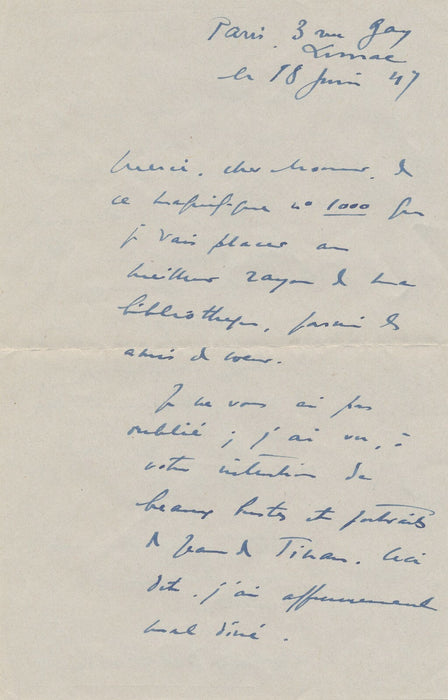 Paris 3 rue Gay
Lussac
le 18 Juin 47
Merci, cher Monsieur, de
ce magnifique n° 1000 que
je vais placer au
meilleur rayon de ma
bibliothèque, parmi les
amis de coeur.
Je ne vous ai pas
oublié ; j'ai vu, à
votre intention de
beaux bustes et portraits
de Jean de Tinan. Ceci
dit, j'ai affreusement
mal diné.